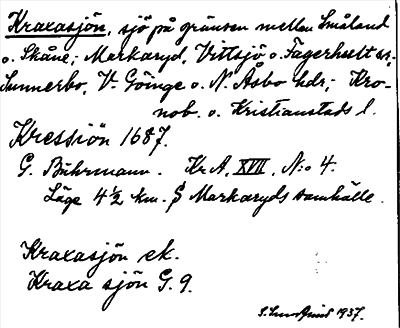 Kraxasjön, sjö på gränsen mellan Småland
o. Skåne; Markaryd, Vittsjö o. Fagerhult sr;
Sunnerbo, V. Göinge o. N. Åsbo hdr; Kro-
nob. o. Kristianstads l.
Kressiön 1687.
G. Buhrmann. Kr.A. XVII, N:o 4.
Läge 4½ km. S Markaryds samhälle.
Kraxasjön ek.
Kraxa sjön G. 9.
1937.